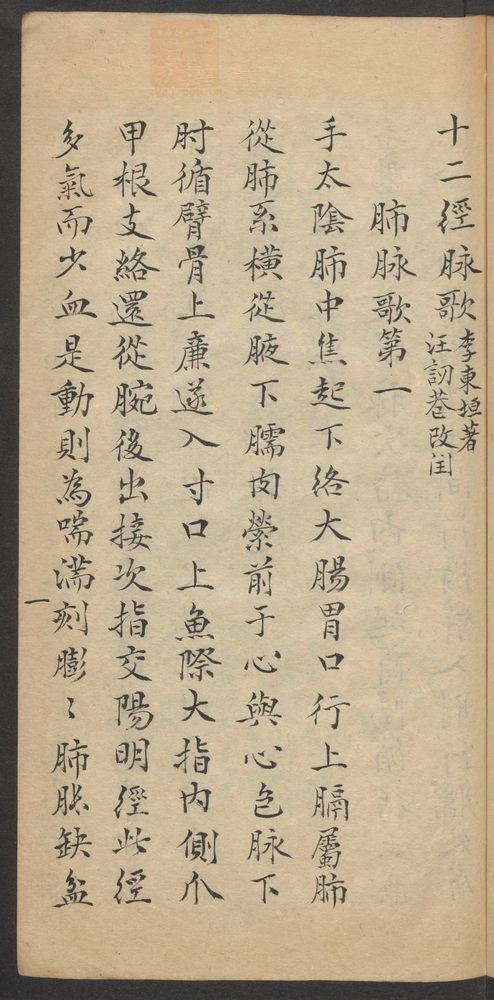 十二經脉歌 李東垣著
汪訒菴改囯
肺脉歌第一
手太陰肺中焦起下络大腸胃口行上膈屬肺
從肺系橫從腋下臑内縈前于心與心包脉下
肘循臂骨上廉遂入寸口上魚際大指内側爪
甲根支絡還從腕後出接次指交陽明經此經
多氣而少血是動則為喘滿刻膨〻肺脹缺盆
一